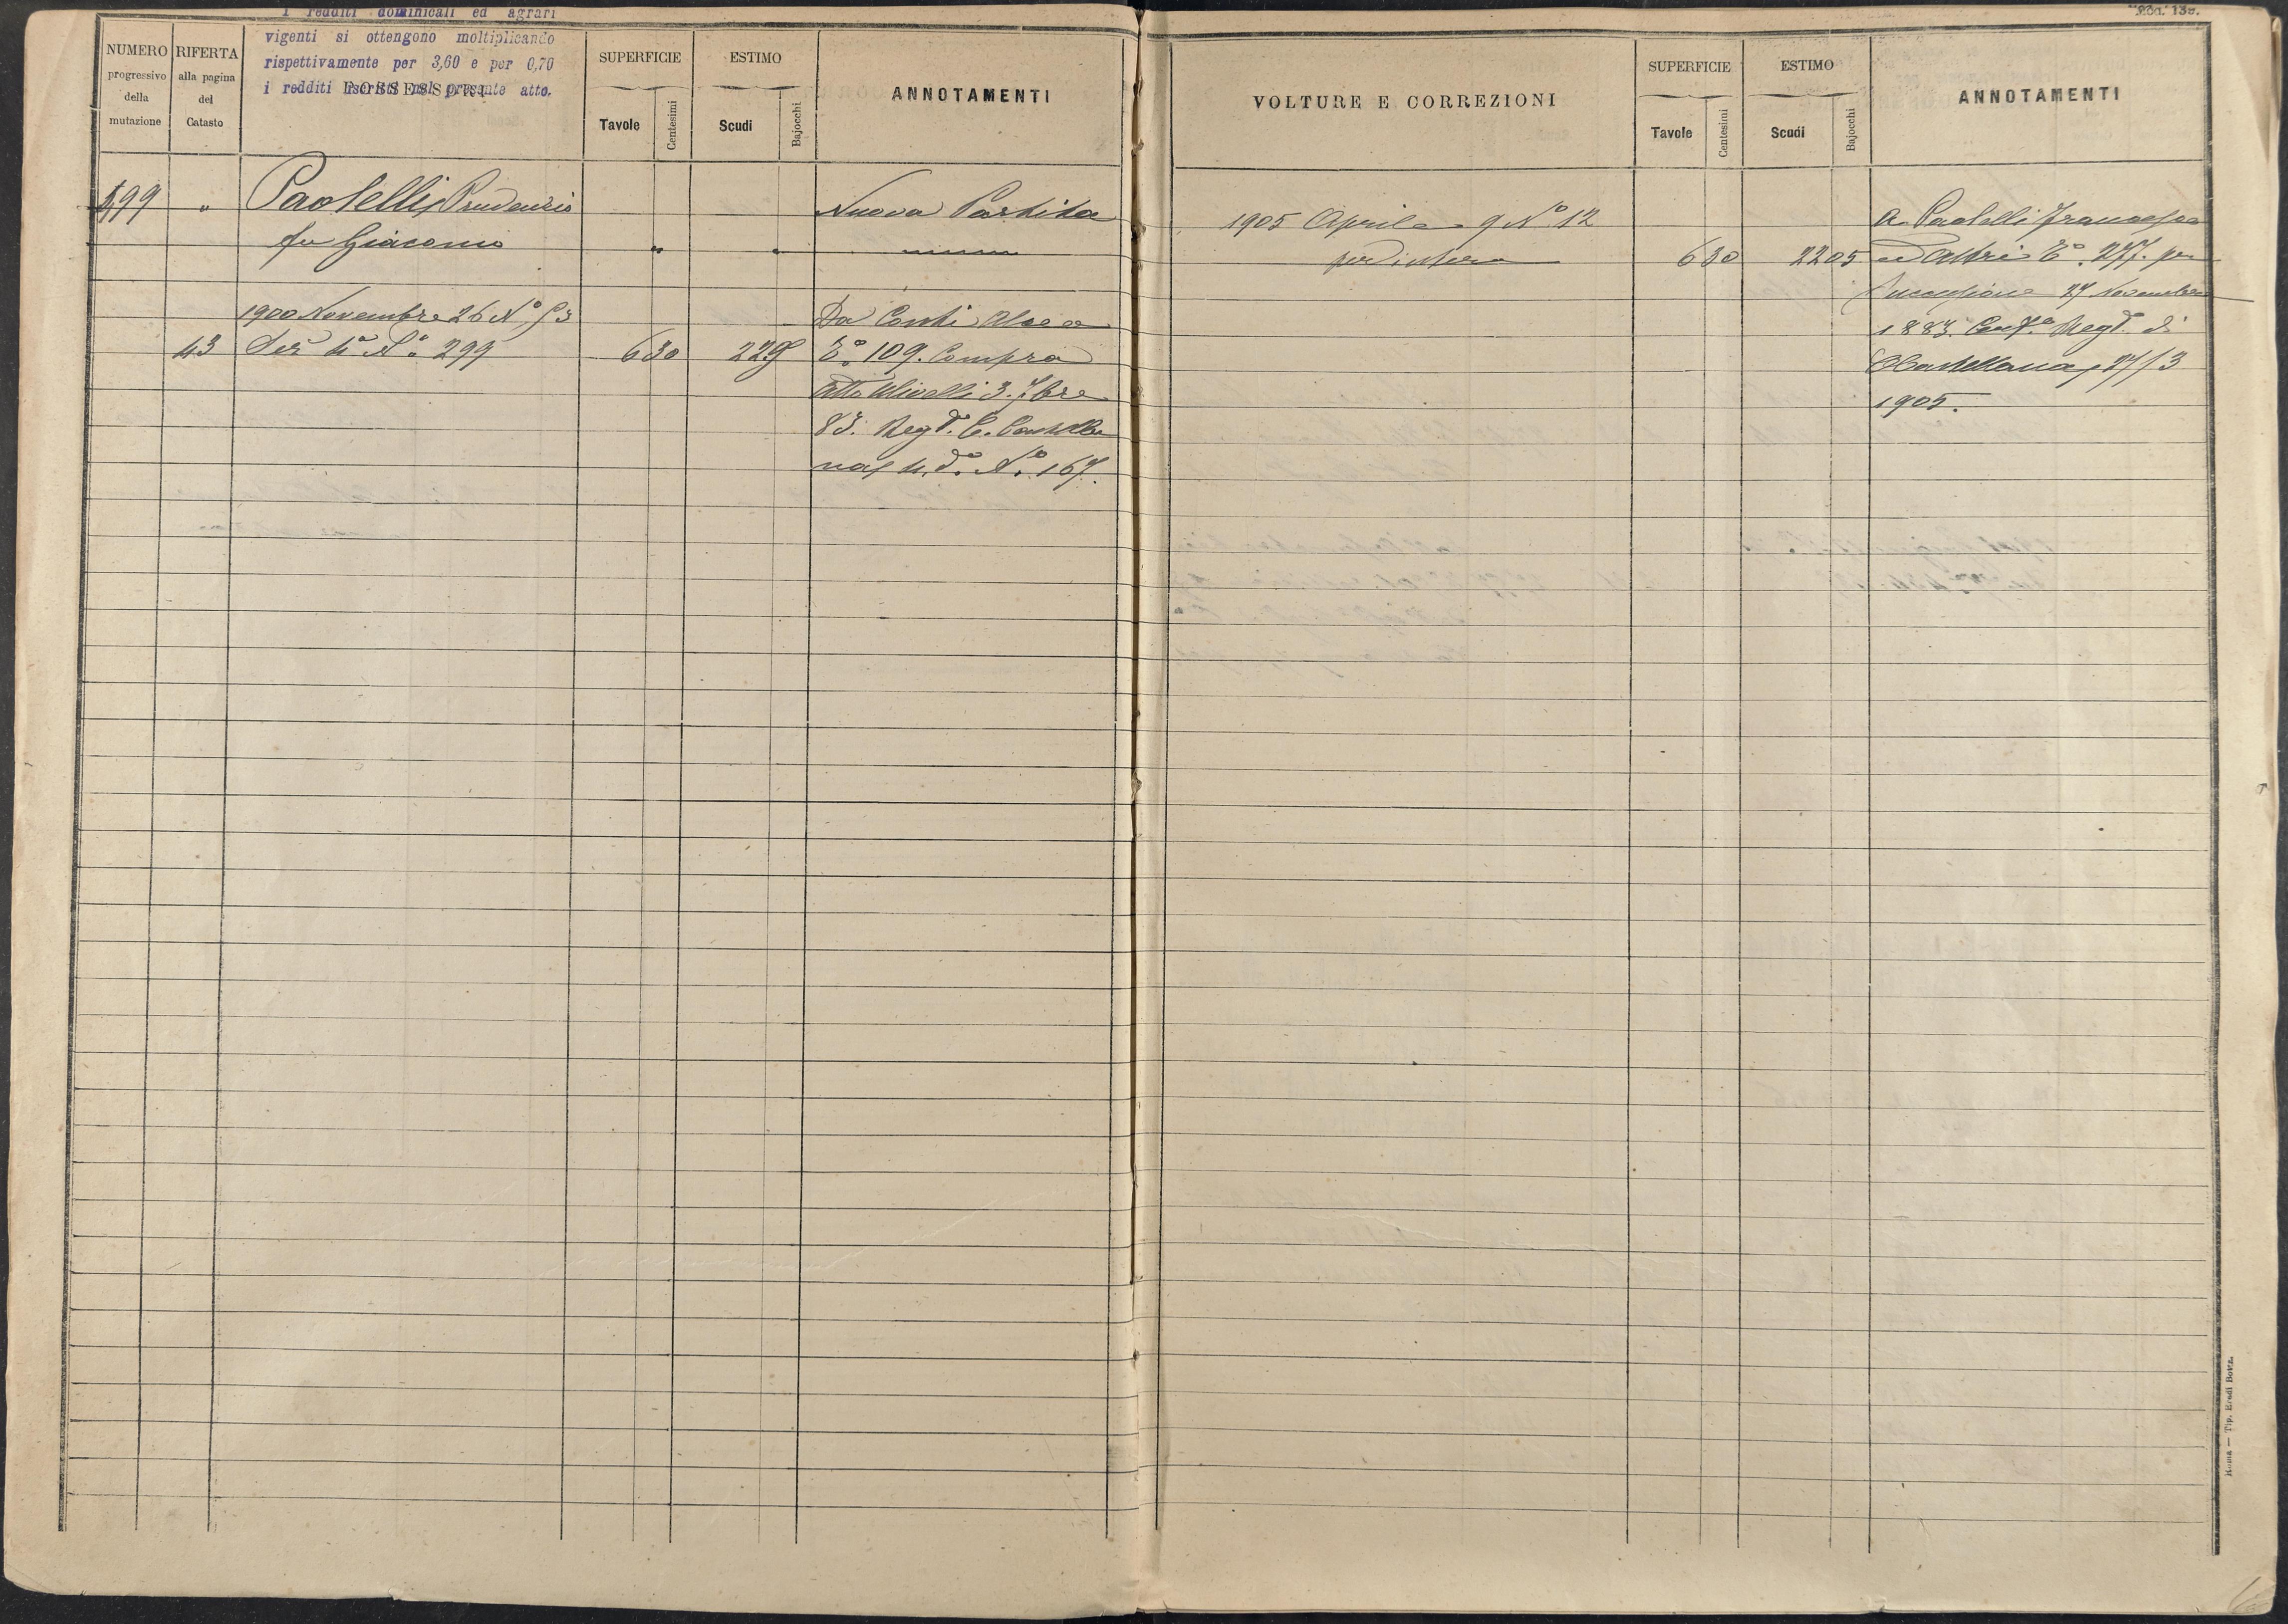 i redditi dominicali ed agrari
vigenti si ottengono moltiplicando
rispettivamente per 3,60 e per 0,70
i redditi iscritti nel presente atto.
NUMERO
progressivo
della
mutazione
RIFERTA
alla pagina
del
Catasto
POSSESSORI
SUPERFICIE
Tavole
Centesimi
ESTIMO
Scudi
Bajocchi
ANNOTAMENTI
499 " Paolelli Prudenzio Nuova Partita
fu Giacomo " "
1900 Novembre 26 N° Da Conti
43 Sez 4ª N° 299 6 30 22 E° 109. Compra
Atto 3. 7bre
83. Regt. C. Castella
na 4 do. N° 167.
Mod. 13e.
VOLTURE E CORREZIONI
SUPERFICIE
Tavole
Centesimi
ESTIMO
Scudi
Bajocchi
ANNOTAMENTI
1905 Aprile 9 N° 12 A Paolelli Francesco
per intero 6 30 22 05 ed Altri E° 277. per
Successione 27 Novembre
1883. Regt. di
CCastellana, 27/3
1905.
Roma — Tip. Eredi Botta.